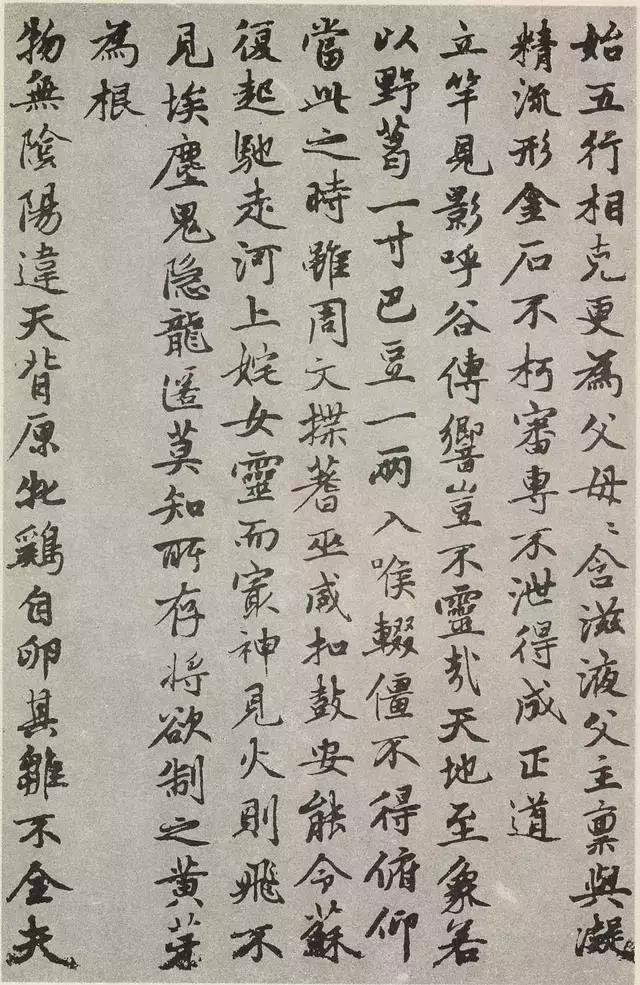 始五行相克更為父母〻含滋液父主稟與凝
精流形金石不朽審專不泄得成正道
立竿見影呼谷傳響豈不靈哉天地至象若
以野葛一寸巴豆一兩入喉輟僵不得俯仰
當此之時雖周文揲蓍巫咸扣鼓安能令蘇
復起馳走河上姹女靈而㝡神見火則飛不
見埃塵鬼隐龍匿莫知所存将欲制之黄芽
為根
物無陰陽違天背原牝鷄自卵其雛不全夫